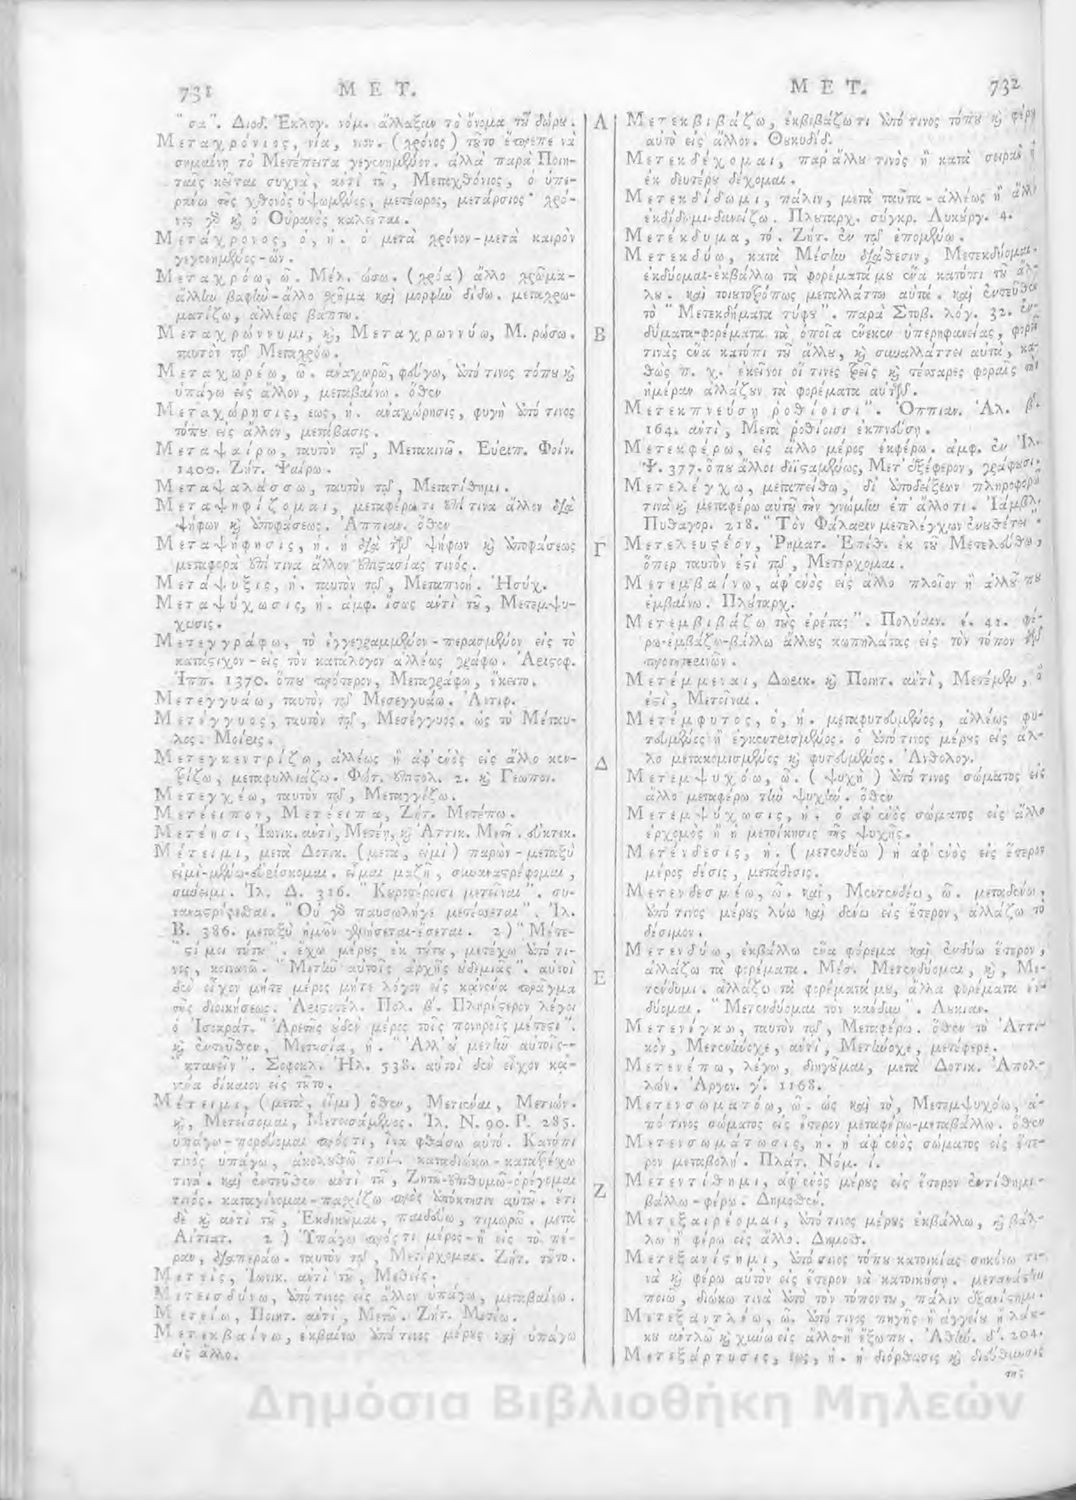 731 ΜΕΤ.
"σα". Διοδ. Ἐκλογ. νόμ. ἄλλαξαν τὸ ὄνομα τοῦ δώρου.
Μεταχρόνιος, νία, νιον. (χρόνος) τοῦτο ἔπρεπε νὰ
σημαίνῃ τὸ Μετέπειτα γεγενημένον. ἀλλὰ παρὰ Ποιη-
ταῖς κεῖται συχνὰ, ἀντὶ τοῦ, Μεταχθόνιος, ὁ ὑπε-
ράνω τῆς χθονὸς ὑψωμένος, μετέωρος, μετάρσιος
γὰρ καὶ ὁ Οὐρανὸς καλεῖται.
Μετάχρονος, ὁ, ἡ. ὁ μετὰ χρόνον-μετὰ καιρὸν
γεγενημένος-ὤν.
Μεταχρόω, ῶ. Μέλ. ώσω. (χρόα) ἄλλο χρῶμα-
ἄλλην βαφὴν-ἄλλο χρῶμα καὶ μορφὴν δίδω. μεταχρω-
ματίζω, ἀλλέως βάπτω.
Μεταχρώννυμι, καὶ, Μεταχρωννύω, Μ. ρώσω.
ταυτὸν τῷ Μεταχρόω.
Μεταχωρέω, ῶ. ἀναχωρῶ, φεύγω, ἀπό τινος τόπου καὶ
ὑπάγω εἰς ἄλλον, μεταβαίνω. ὅθεν
Μεταχώρησις, εως, ἡ. ἀναχώρησις, φυγὴ ἀπό τινος
τόπου εἰς ἄλλον, μετάβασις.
Μεταψαίρω, ταυτὸν τῷ, Μετακινῶ. Εὐριπ. Φοίν.
1400. Ζήτ. Ψαίρω.
Μεταψαλάσσω, ταυτὸν τῷ, Μετατίθημι.
Μεταψηφίζομαι, μεταφέρω τι ἐπί τινα ἄλλον διὰ
ψήφων καὶ ἀποφάσεως. Ἀππιαν. ὅθεν
Μεταψήφησις, ἡ. ἡ διὰ τῶν ψήφων καὶ ἀποφάσεως
μεταφορὰ ἐπί τινα ἄλλον ἐπιστασίας τινός.
Μετάψυξις, ἡ. ταυτὸν τῷ, Μεταπνοή. Ἡσύχ.
Μεταψύχωσις, ἡ. ἀμφ. ἴσως ἀντὶ τοῦ, Μετεμψύ-
χωσις.
Μετεγγράφω, τὸ ἐγγεγραμμένον-περασμένον εἰς τὸ
κατάστιχον-εἰς τὸν κατάλογον ἀλλέως γράφω. Ἀριστοφ.
Ἱππ. 1370. ὅπου πρότερον, Μεταγράφω, ἔκειτο.
Μετεγγυάω, ταυτὸν τῷ Μεσεγγυάω. Ἀντιφ.
Μετέγγυος, ταυτὸν τῷ, Μεσέγγυος. ὡς τὸ Μέταυ-
λος. Μοίρις.
Μετεγκεντρίζω, ἀλλέως ἢ ἀφ' ἑνὸς εἰς ἄλλο κεν-
τρίζω, μεταφυλλιάζω. Φώτ. ἐπιστολ. 2. καὶ Γεωπον.
Μετεγχέω, ταυτὸν τῷ, Μεταγγίζω.
Μετέειπον, Μετέειπα, Ζήτ. Μετέπω.
Μετέησι, Ἰωνικ. ἀντὶ, Μετέῃ, καὶ Ἀττικ. Μετῇ. ὑποτακτικ.
Μέτειμι, μετὰ Δοτικ. (μετὰ, εἰμὶ) παρὼν-μεταξὺ
εἰμὶ-μένω-εὑρίσκομαι. εἶμαι μαζῆ, συναναστρέφομαι,
σύνειμι. Ἰλ. Δ. 316. "Κυροτέροισι μετεῖναι". συ-
ναναστρέφεσθαι. "Οὐ γὰρ παυσωλήγε μετέσσεται". Ἰλ.
Β. 386. μεταξὺ ἡμῶν γενήσεται-ἔσεται. 2) "Μέτε-
"στί μοι τούτου". ἔχω μέρος ἐκ τούτου, μετέχω ἀπό τι-
νος, κοινωνῶ. "Μετῆν αὐτοῖς ἀρχῆς οὐδεμιᾶς". αὐτοὶ
δὲν εἶχον μήτε μέρος μήτε λόγον εἰς κανένα πρᾶγμα
τῆς διοικήσεως. Ἀριστοτέλ. Πολ. β'. Πληρέστερον λέγει
ὁ Ἰσοκράτ. "Ἀρετῆς οὐδὲν μέρος τοῖς πονηροῖς μέτεστι".
καὶ ἐντεῦθεν, Μετουσία, ἡ. "Ἀλλ' οὐ μετῆν αὐτοῖς--
"κτανεῖν". Σοφοκλ. Ἠλ. 538. αὐτοὶ δὲν εἶχον κα-
νένα δίκαιον εἰς τοῦτο.
Μέτειμι, (μετὰ, εἶμι) ὅθεν, Μετιέναι, Μετιών.
καὶ, Μετείσομαι, Μετεισάμενος. Ἰλ. Ν. 90. Ρ. 285.
ὑπάγω-πορεύομαι πρός τι, ἵνα φθάσω αὐτό. Κατόπι
τινὸς ὑπάγω, ἀκολουθῶ τινί. καταδιώκω-κατατρέχω
τινά. καὶ ἐντεῦθεν ἀντὶ τοῦ, Ζητῶ-ἐπιθυμῶ-ὀρέγομαι
τινός. καταγίνομαι-πασχίζω πρὸς ἀπόκτησιν αὐτοῦ. ἔτι
δὲ καὶ ἀντὶ τοῦ, Ἐκδικοῦμαι, παιδεύω, τιμωρῶ. μετὰ
Αἰτιατ. 2) Ὑπάγω πρός τι μέρος-ἢ εἰς τὸ πέ-
ραν, διαπεράω. ταυτὸν τῷ, Μετέρχομαι. Ζήτ. τοῦτο.
Μετεὶς, Ἰωνικ. ἀντὶ τοῦ, Μεθείς.
Μετεισδύνω, ἀπό τινος εἰς ἄλλον ὑπάγω, μεταβαίνω.
Μετείω, Ποιητ. ἀντὶ, Μετῶ. Ζήτ.
Μετεκβαίνω, ἐκβαίνω ἀπό τινος μέρους καὶ ὑπάγω
εἰς ἄλλο.
Α
Β
Γ
Δ
Ε
Ζ
ΜΕΤ. 732
Μετεκβιβάζω, ἐκβιβάζω τι ἀπό τινος τόπου καὶ φέρω
αὐτὸ εἰς ἄλλον. Θουκυδίδ.
Μετεκδέχομαι, παρ' ἄλλου τινὸς ἢ κατὰ σειρὰν ἢ
ἐκ δευτέρου δέχομαι.
Μετεκδίδωμι, πάλιν, μετὰ ταῦτα-ἀλλέως ἢ
ἐκδίδωμι-δανείζω. Πλουταρχ. σύγκρ. Λυκούργ. 4.
Μετέκδυμα, τό. Ζήτ. ἐν τῷ ἑπομένῳ.
Μετεκδύω, κατὰ Μέσην διάθεσιν, Μετεκδύομαι.
ἐκδύομαι-ἐκβάλλω τὰ φορέματά μου ἕνα κατόπι τοῦ ἄλ-
λου. καὶ τοιουτοτρόπως μεταλλάττω αὐτά. καὶ ἐντεῦθεν
τὸ "Μετεκδήματα τύφου". παρὰ Στοβ. λόγ. 32. ἐν-
δύματα-φορέματα τὰ ὁποῖα ἕνεκεν ὑπερηφανείας, φορεῖ
τινὰς ἕνα κατόπι τοῦ ἄλλου, καὶ συναλλάττει αὐτὰ, κα-
θὼς π. χ. ἐκεῖνοι οἵτινες τρεῖς καὶ τέσσαρες φοραῖς τὴν
ἡμέραν ἀλλάζουν τὰ φορέματα αὑτῶν.
Μετεκπνεύσῃ ῥοθίοισι". Ὀππιαν. Ἁλ. β'.
164. ἀντὶ, Μετὰ ῥοθίοισι ἐκπνεύσῃ.
Μετεκφέρω, εἰς ἄλλο μέρος ἐκφέρω. ἀμφ. ἐν Ἰλ.
Ψ. 377. ὅπου ἄλλοι διϊσταμένως, Μετ' ἐξέφερον, γράφουσι.
Μετελέγχω, μεταπείθω, δι' ἀποδείξεων πληροφορῶ
τινὰ καὶ μεταφέρω αὐτοῦ τὴν γνώμην ἐπ' ἄλλο τι. Ἰάμβλ.
Πυθαγορ. 218. "Τὸν Φάλαριν μετελέγχων ἐνουθέτει".
Μετελευστέον, Ῥηματ. Ἐπίθ. ἐκ τοῦ Μετελεύθω,
ὅπερ ταυτὸν ἐστὶ τῷ, Μετέρχομαι.
Μετεμβαίνω, ἀφ' ἑνὸς εἰς ἄλλο πλοῖον ἢ ἀλλοῦ που
ἐμβαίνω. Πλούταρχ.
Μετεμβιβάζω τοὺς ἐρέτας". Πολύαιν. έ. 41. φέ-
ρω-ἐμβάζω-βάλλω ἄλλους κωπηλάτας εἰς τὸν τόπον τῶν
προτητερινῶν.
Μετέμμεναι, Δωρικ. καὶ Ποιητ. ἀντὶ, Μετέμεν, ὅ
ἐστι, Μετεῖναι.
Μετέμφυτος, ὁ, ἡ. μεταφυτευμένος, ἀλλέως φυ-
τευμένος ἢ ἐγκεντρισμένος. ὁ ἀπό τινος μέρους εἰς ἄλ-
λο μετακομισμένος καὶ φυτευμένος. Ἀνθολογ.
Μετεμψυχόω, ῶ. (ψυχὴ) ἀπό τινος σώματος εἰς
ἄλλο μεταφέρω τὴν ψυχήν. ὅθεν
Μετεμψύχωσις, ἡ. ὁ ἀφ' ἑνὸς σώματος εἰς ἄλλο
ἐρχομὸς ἢ ἡ μετοίκησις τῆς ψυχῆς.
Μετένδεσις, ἡ. (μετενδέω) ἡ ἀφ' ἑνὸς εἰς ἕτερον
μέρος δέσις, μετάδεσις.
Μετενδεσμέω, ῶ. καὶ, Μετενδέω, ῶ. μεταδένω,
ἀπό τινος μέρους λύω καὶ δένω εἰς ἕτερον, ἀλλάζω τὸ
δέσιμον.
Μετενδύω, ἐκβάλλω ἕνα φόρεμα καὶ ἐνδύω ἕτερον,
ἀλλάζω τὰ φορέματα. Μέσ. Μετενδύομαι, καὶ, Με-
τένδυμι. ἀλλάζω τὰ φορέματά μου, ἄλλα φορέματα ἐν-
δύομαι. "Μετενδύομαι τὸν κανδυν". Λουκιαν.
Μετενίγκω, ταυτὸν τῷ, Μεταφέρω. ὅθεν τὸ Ἀττι-
κὸν, Μετενήνοχε, ἀντὶ, Μετήνοχε, μετέφερε.
Μετενέπω, λέγω, διηγοῦμαι, μετὰ Δοτικ. Ἀπολ-
λών. Ἀργον. γ'. 1168.
Μετενσωματόω, ῶ. ὡς καὶ τὸ, Μετεμψυχόω, ἀ-
πό τινος σώματος εἰς ἕτερον μεταφέρω-μεταβάλλω. ὅθεν
Μετενσωμάτωσις, ἡ. ἡ ἀφ' ἑνὸς σώματος εἰς ἕτε-
ρον μεταβολή. Πλάτ. Νόμ. ί.
Μετεντίθημι, ἀφ' ἑνὸς μέρους εἰς ἕτερον ἐντίθημι-
βάλλω-φέρω. Δημοσθέν.
Μετεξαιρέομαι, ἀπό τινος μέρους ἐκβάλλω, καὶ βάλ-
λω ἢ φέρω εἰς ἄλλο. Δημοσθ.
Μετεξανίστημι, ἀπό τινος τόπου κατοικίας σηκόνω τι-
νὰ καὶ φέρω αὐτὸν εἰς ἕτερον νὰ κατοικήσῃ. μετανάστην
ποιῶ, διώκω τινὰ ἀπὸ τὸν τόπον του, πάλιν ἐξανίστημι.
Μετεξαντλέω, ῶ. ἀπό τινος πηγῆς ἢ ἀγγείου ἢ λάκ-
κου ἀντλῶ καὶ χύνω εἰς ἄλλο-ἢ ἔξωπου. Ἀθήν. δ'. 204.
Μετεξάρτυσις, εως, ἡ. ἡ διόρθωσις καὶ διεύθυνσις
τῆς
Δημόσια Βιβλιοθήκη Μηλεών